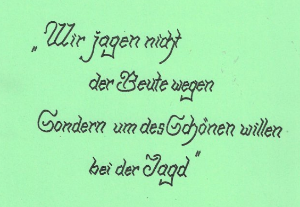 „Wir jagen nicht
der Beute wegen
Sondern um des Schönen willen
bei der Jagd"